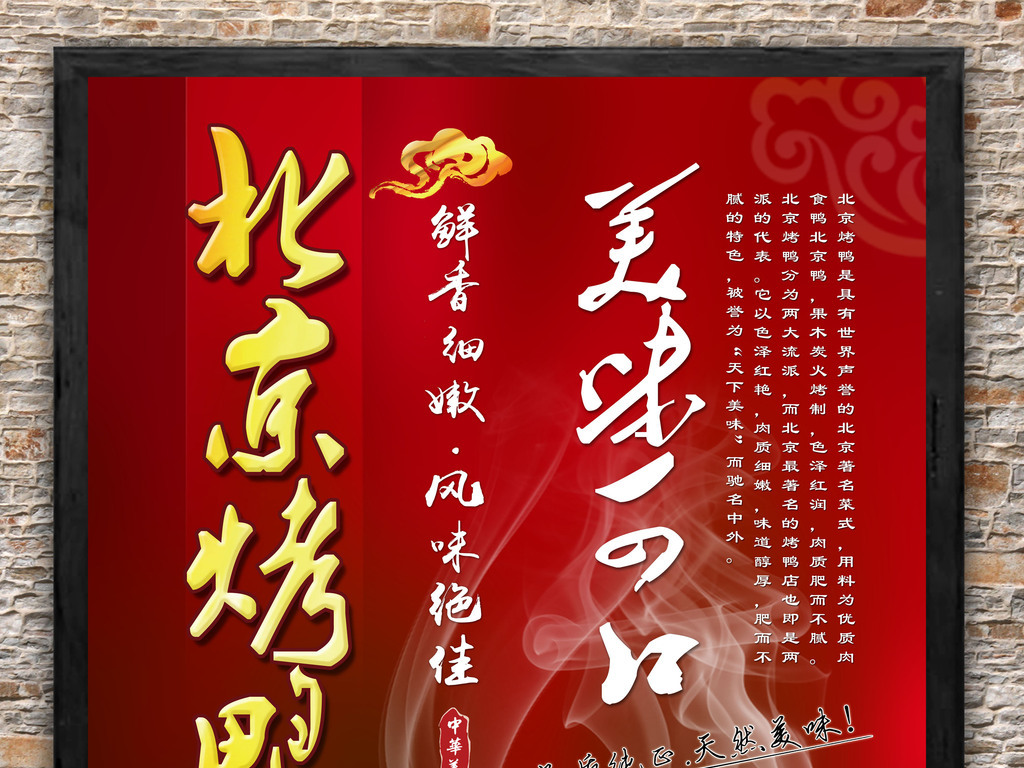 北京烤鸭
鲜香细嫩·风味绝佳
中華
美味一の口
北京烤鸭是具有世界声誉的北京著名菜式，用料为优质肉
食鸭北京鸭，果木炭火烤制，色泽红润，肉质肥而不腻。
北京烤鸭分为两大流派，而北京最著名的烤鸭店也即是两
派的代表。它以色泽红艳，肉质细嫩，味道醇厚，肥而不
腻的特色，被誉为“天下美味”而驰名中外。
纯正.天然美味!